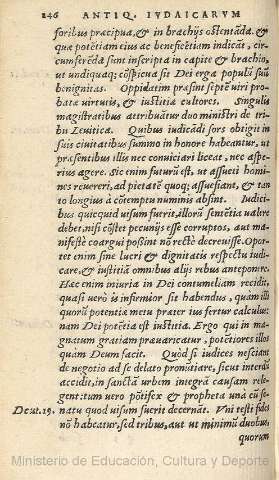 246 ANTIQ. IVDAICARVM
foribus præcipua, & in brachijs ostentãda. &
quæ potẽtiam eius ac beneficẽtiam indicãt, cir-
cunferẽda sunt inscripta in capite & brachio,
ut undiquaq; cõspicua sit Dei erga populũ suũ
benignitas. Oppidatim præsint septẽ uiri pro-
batæ uirtutis, & iustitiæ cultores. Singulis
magistratibus attribuãtur duo ministri de tri-
bu Leuitica. Quibus iudicãdi sors obtigit in
suis ciuitatibus summo in honore habeantur, ut
præsentibus illis nec conuiciari liceat, nec aspe-
rius agere. Sic enim futurũ est, ut assueti homi-
nes reuereri, ad pietatẽ quoq; assuefiant, & tan
to longius à cõtemptu numinis absint. Iudici-
bus quicquid uisum fuerit, illorũ sentẽtia ualere
debet, nisi cõstet pecunijs esse corruptos, aut ma
nifestè coargui possint nõ rectè decreuisse. Opor
tet enim sine lucri & dignitatis respectu iudi-
care, & iustitiã omnibus alijs rebus anteponere.
Hæc enim iniuria in Dei contumeliam recidit,
quasi uerò is infirmior sit habendus, quàm illi
quorũ potentiæ metu præter ius fertur calculus:
nam Dei potẽtia est iustitia. Ergo qui in ma-
gnatum gratiam præuaricatur, potẽtiores illos
quàm Deum facit. Quòd si iudices nesciant
de negotio ad se delato pronũtiare, sicut interdũ
accidit, in sanctã urbem integrã causam rele-
gent: tum uero põtifex & propheta unà cũ se-
Deut. 19. natu quod uisum fuerit decernãt. Vni testi fidẽ
nõ habeatur, sed tribus, aut ut minimũ duobus,
quorum
Ministerio de Educación, Cultura y Deporte